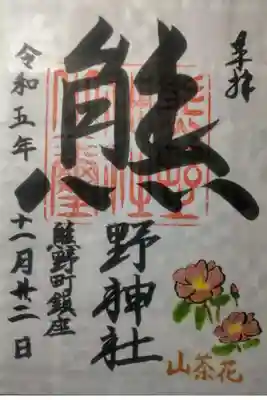 奉拝
熊
野神社
熊野町鎮座
令和五年
十一月廿二日
山茶花